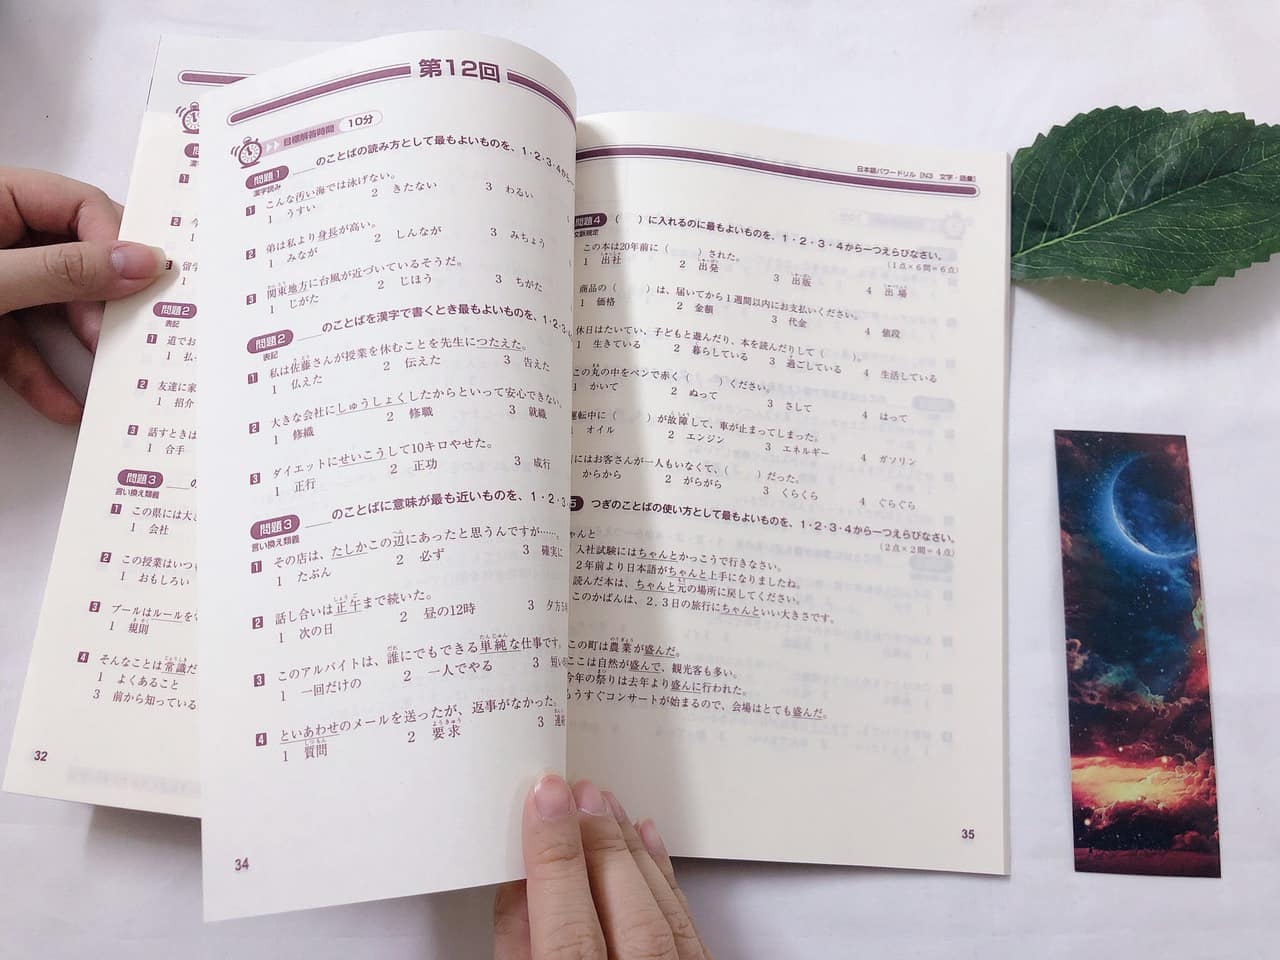 問題2
表記
1 道でお
1 払
2 友達に家
1 招介
3 話すときは
1 合手
問題3
言い換え類義
1 この県には大
1 会社
2 この授業はいつ
1 おもしろい
3 プールはルールを
1 規則
4 そんなことは常識だ
1 よくあること
3 前から知っている
32
第12回
目標解答時間 10分
問題1 ＿＿のことばの読み方として最もよいものを、1・2・3・4から一つ
漢字読み
1 こんな汚い海では泳げない。
1 うすい 2 きたない 3 わるい
2 弟は私より身長が高い。
1 みなが 2 しんなが 3 みちょう
3 関東地方に台風が近づいているそうだ。
1 じがた 2 じほう 3 ちがた
問題2 ＿＿のことばを漢字で書くとき最もよいものを、1・2・3・
表記
1 私は佐藤さんが授業を休むことを先生につたえた。
1 仏えた 2 伝えた 3 告えた
2 大きな会社にしゅうしょくしたからといって安心できない。
1 修織 2 修職 3 就織
3 ダイエットにせいこうして10キロやせた。
1 正行 2 正功 3 成行
問題3 ＿＿のことばに意味が最も近いものを、1・2・3・
言い換え類義
1 その店は、たしかこの辺にあったと思うんですが……。
1 たぶん 2 必ず 3 確実に
2 話し合いは正午まで続いた。
1 次の日 2 昼の12時 3 夕方
3 このアルバイトは、誰にでもできる単純な仕事です。
1 一回だけの 2 一人でやる 3 短い
4 といあわせのメールを送ったが、返事がなかった。
1 質問 2 要求 3 連絡
34
日本語パワードリル [N3 文字・語彙]
問題4 （　）に入れるのに最もよいものを、1・2・3・4から一つえらびなさい。
文脈規定 （1点×6問＝6点）
この本は20年前に（　）された。
1 出社 2 出発 3 出版 4 出場
商品の（　）は、届いてから1週間以内にお支払いください。
1 価格 2 金額 3 代金 4 値段
休日はたいてい、子どもと遊んだり、本を読んだりして（　）。
1 生きている 2 暮らしている 3 過ごしている 4 生活している
この丸の中をペンで赤く（　）ください。
1 かいて 2 ぬって 3 さして 4 はって
運転中に（　）が故障して、車が止まってしまった。
1 オイル 2 エンジン 3 エネルギー 4 ガソリン
にはお客さんが一人もいなくて、（　）だった。
からから 2 がらがら 3 くらくら 4 ぐらぐら
5 つぎのことばの使い方として最もよいものを、1・2・3・4から一つえらびなさい。
（2点×2問＝4点）
ゃんと
入社試験にはちゃんとかっこうで行きなさい。
2年前より日本語がちゃんと上手になりましたね。
読んだ本は、ちゃんと元の場所に戻してください。
このかばんは、2、3日の旅行にちゃんといい大きさです。
この町は農業が盛んだ。
ここは自然が盛んで、観光客も多い。
今年の祭りは去年より盛んに行われた。
もうすぐコンサートが始まるので、会場はとても盛んだ。
35